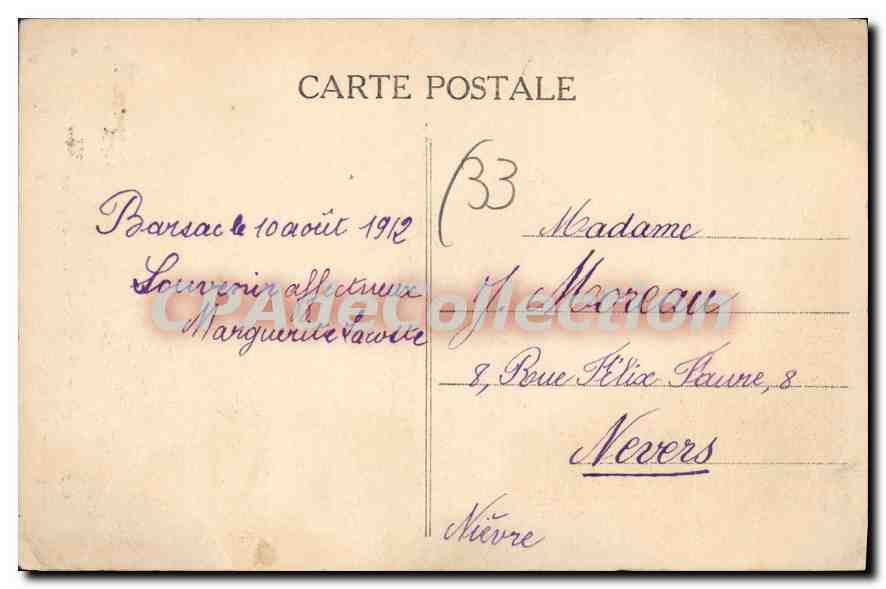 CARTE POSTALE
33
Barsac le 10 août 1912
Souvenir affectueux
Marguerite Lacoste
Madame
J. Moreau
8, Rue Félix Faure, 8
Nevers
Nièvre
CPADeCollection